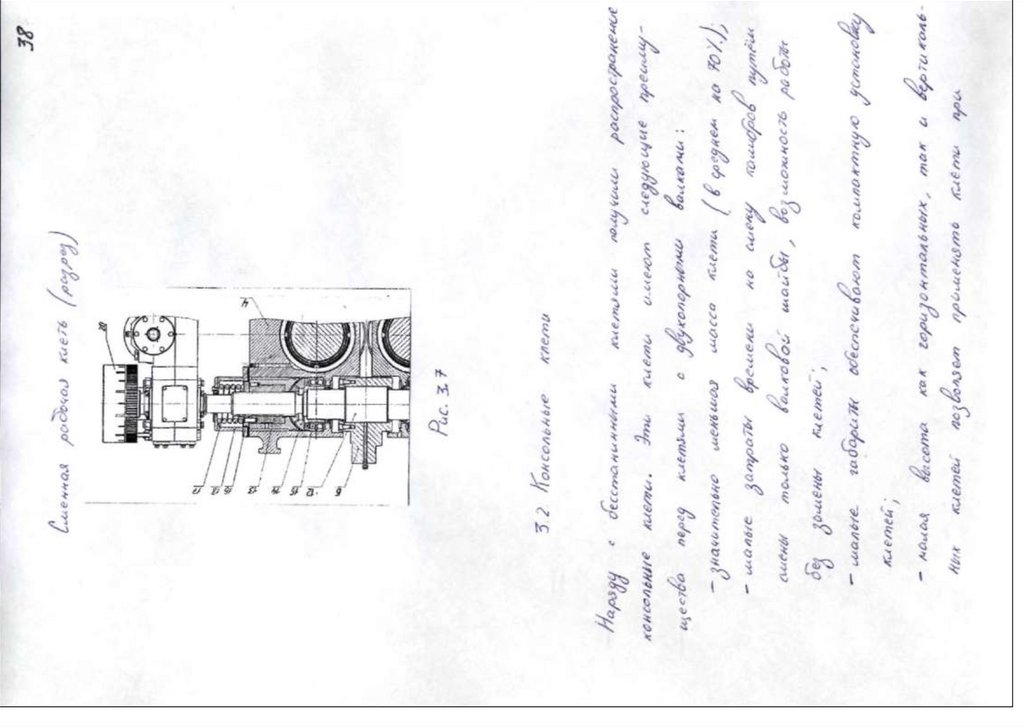 38
Сменная рабочая клеть (разрез)
20
14
9
Рис. 3.7
3.2 Консольные клети
Наряду с бесстанинными клетями получили распространение
консольные клети. Эти клети имеют следующие преиму-
щества перед клетями с двухопорными валками:
- значительно меньшая масса клети (в среднем на 40%);
- малые затраты времени на смену калибров путём
смены только валковой шайбы, возможность работы
без замены клетей;
- малые габариты обеспечивают компактную установку
клетей;
- малая высота как горизонтальных, так и вертикаль-
ных клетей позволяет применять клети при